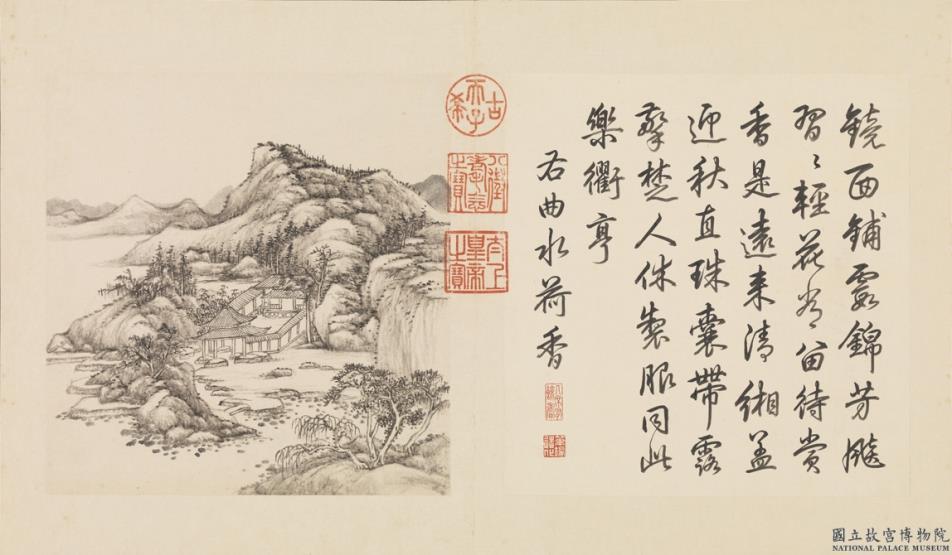 鏡面鋪霞錦芳飈
習〻輕花常留待賞
香是遠來清緗盖
迎秋直珠囊帶露
擎楚人休製服同此
樂衢亨
右曲水荷香
古希天子
八徵耄念之寶
太上皇帝之寶
國立故宮博物院
NATIONAL PALACE MUSEUM